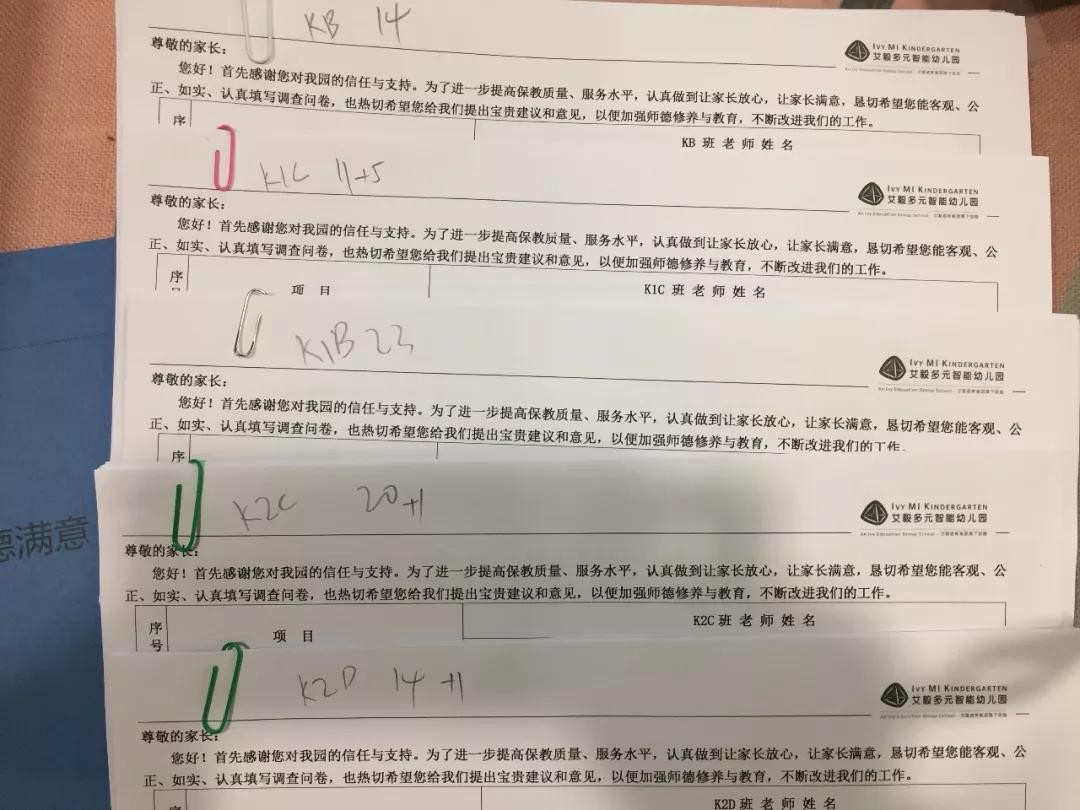 KB 14
IVY MI KINDERGARTEN
艾毅多元智能幼儿园
尊敬的家长：
您好！首先感谢您对我园的信任与支持。为了进一步提高保教质量、服务水平，认真做到让家长放心，让家长满意，恳切希望您能客观、公
正、如实、认真填写调查问卷，也热切希望您给我们提出宝贵建议和意见，以便加强师德修养与教育，不断改进我们的工作。
序
KB 班 老 师 姓 名
K1C 11+5
IVY MI KINDERGARTEN
艾毅多元智能幼儿园
An Ivy Education Group School
尊敬的家长：
您好！首先感谢您对我园的信任与支持。为了进一步提高保教质量、服务水平，认真做到让家长放心，让家长满意，恳切希望您能客观、公
正、如实、认真填写调查问卷，也热切希望您给我们提出宝贵建议和意见，以便加强师德修养与教育，不断改进我们的工作。
序 项 目 K1C 班 老 师 姓 名
K1B 23
IVY MI KINDERGARTEN
艾毅多元智能幼儿园
An Ivy Education Group School
尊敬的家长：
您好！首先感谢您对我园的信任与支持。为了进一步提高保教质量、服务水平，认真做到让家长放心，让家长满意，恳切希望您能客观、公
正、如实、认真填写调查问卷，也热切希望您给我们提出宝贵建议和意见，以便加强师德修养与教育，不断改进我们的工作.
序
K2C 20+1
IVY MI KINDERGARTEN
艾毅多元智能幼儿园
An Ivy Education Group School
德满意
尊敬的家长：
您好！首先感谢您对我园的信任与支持。为了进一步提高保教质量、服务水平，认真做到让家长放心，让家长满意，恳切希望您能客观、公
正、如实、认真填写调查问卷，也热切希望您给我们提出宝贵建议和意见，以便加强师德修养与教育，不断改进我们的工作。
序号 项 目 K2C 班 老 师 姓 名
K2D 14+1
IVY MI KINDERGARTEN
艾毅多元智能幼儿园
An Ivy Education Group School
尊敬的家长：
您好！首先感谢您对我园的信任与支持。为了进一步提高保教质量、服务水平，认真做到让家长放心，让家长满意，恳切希望您能客观、公
正、如实、认真填写调查问卷，也热切希望您给我们提出宝贵建议和意见，以便加强师德修养与教育，不断改进我们的工作。
序 K2D 班 老 师 姓 名